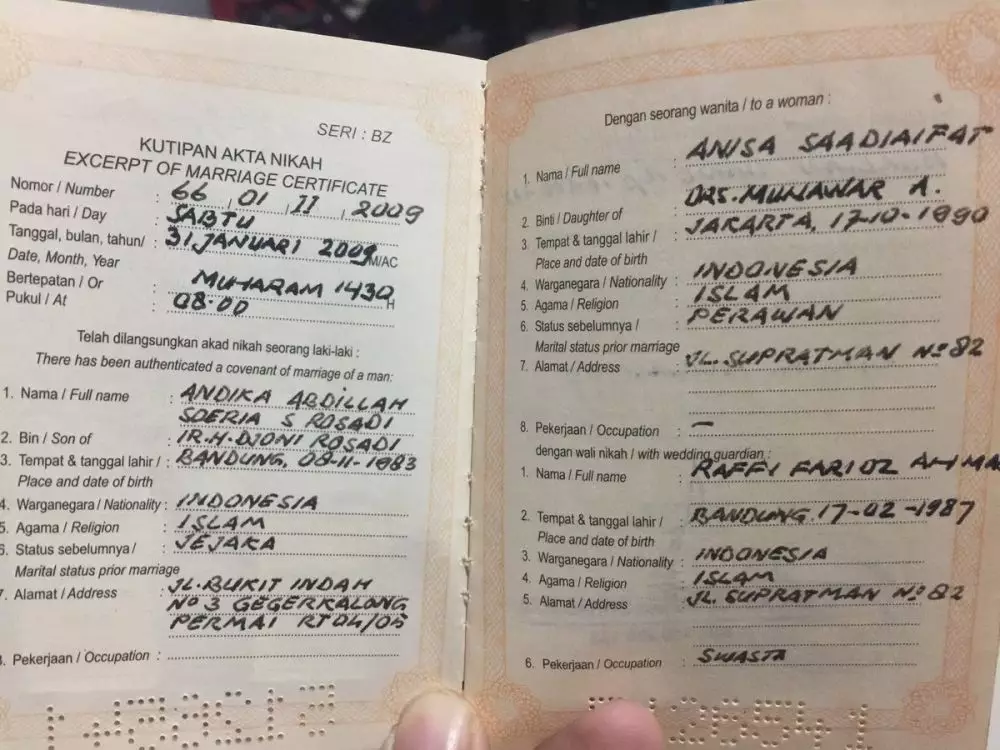 SERI : BZ
KUTIPAN AKTA NIKAH
EXCERPT OF MARRIAGE CERTIFICATE
Nomor / Number : 66 , 01 , 11 , 2009
Pada hari / Day : SABTU
Tanggal, bulan, tahun/ : 31 JANUARI 2009 M/AC
Date, Month, Year
Bertepatan / Or : MUHARAM 1430 H
Pukul / At : 08.00
Telah dilangsungkan akad nikah seorang laki-laki :
There has been authenticated a covenant of marriage of a man:
1. Nama / Full name : ANDIKA ABDILLAH
SOERIA S ROSADI
2. Bin / Son of : IR.H.DJONI ROSADI
3. Tempat & tanggal lahir / : BANDUNG, 08-11-1983
Place and date of birth
4. Warganegara / Nationality : INDONESIA
5. Agama / Religion : ISLAM
6. Status sebelumnya / : JEJAKA
Marital status prior marriage
7. Alamat / Address : JL.BUKIT INDAH
No 3 GEGERKALONG
PERMAI RT 04/05
8. Pekerjaan / Occupation :
Dengan seorang wanita / to a woman :
1. Nama / Full name : ANISA SAADIAIFAT
2. Binti / Daughter of : DRS.MUNAWAR A.
3. Tempat & tanggal lahir / : JAKARTA, 17-10-1990
Place and date of birth
4. Warganegara / Nationality : INDONESIA
5. Agama / Religion : ISLAM
6. Status sebelumnya / : PERAWAN
Marital status prior marriage
7. Alamat / Address : JL.SUPRATMAN No 82
8. Pekerjaan / Occupation : —
dengan wali nikah / with wedding guardian :
1. Nama / Full name : RAFFI FARIDZ AHMA
2. Tempat & tanggal lahir / : BANDUNG.17-02-1987
Place and date of birth
3. Warganegara / Nationality : INDONESIA
4. Agama / Religion : ISLAM
5. Alamat / Address : JL.SUPRATMAN No 82
6. Pekerjaan / Occupation : SWASTA